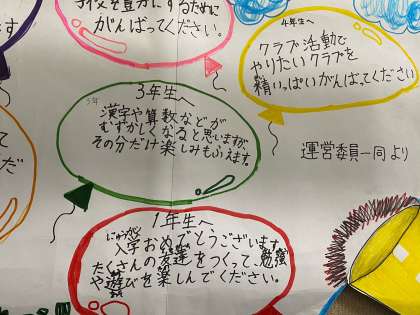 学校を豊かにするために
がんばってください。
4年生へ
クラブ活動で
やりたいクラブを
精いっぱいがんばってください
3年生へ
3年
漢字や算数などが
むずかしくなると思いますが、
その分だけ楽しみもふえます。
運営委員一同より
1年生へ
にゅうがく
入学おめでとうございます。
たくさんの友達をつくって、勉強
や遊びを楽しんでください。